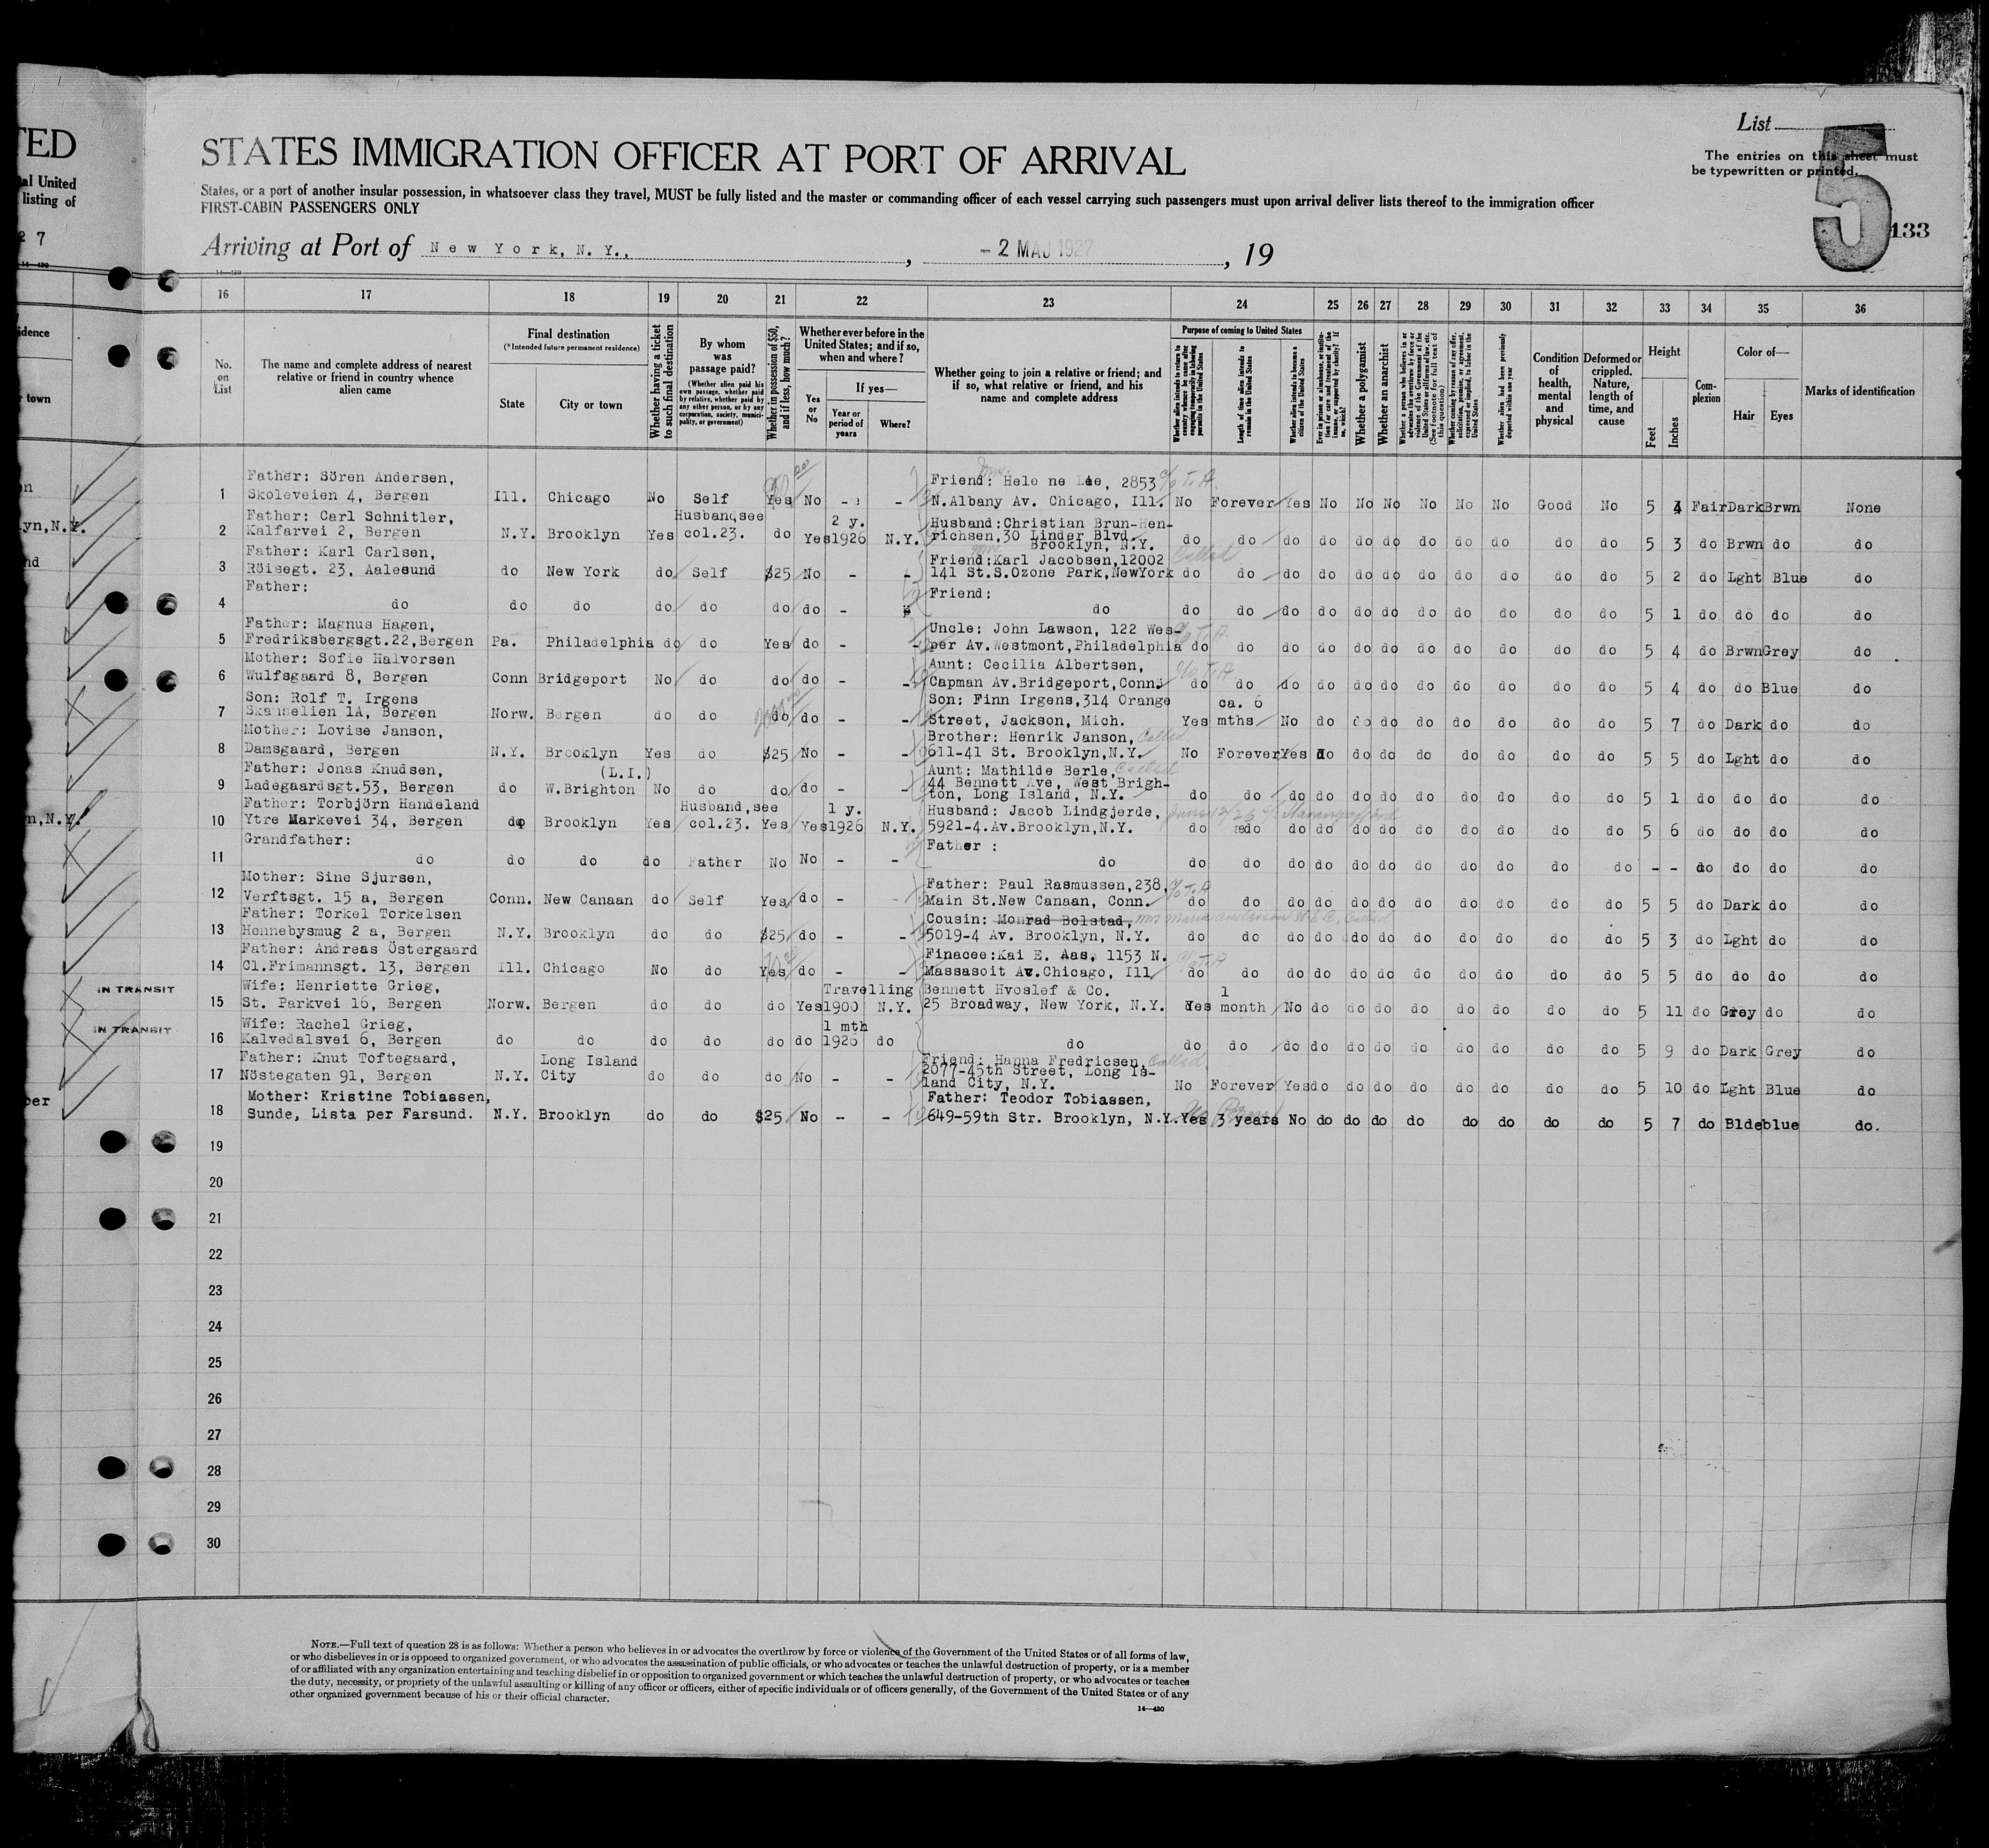 TED
al United
listing of
2 7
STATES IMMIGRATION OFFICER AT PORT OF ARRIVAL
List
5
The entries on this sheet must
be typewritten or printed.
133
States, or a port of another insular possession, in whatsoever class they travel, MUST be fully listed and the master or commanding officer of each vessel carrying such passengers must upon arrival deliver lists thereof to the immigration officer
FIRST-CABIN PASSENGERS ONLY
Arriving at Port of New York, N. Y., , - 2 MAJ 1927 , 19
16 17 18 19 20 21 22 23 24 25 26 27 28 29 30 31 32 33 34 35 36
No. on List
The name and complete address of nearest relative or friend in country whence alien came
Final destination
(*Intended future permanent residence)
State
City or town
Whether having a ticket to such final destination
By whom was passage paid?
(Whether alien paid his own passage, whether paid by relative, whether paid by any other person, or by any corporation, society, municipality, or government)
Whether in possession of $50, and if less, how much?
Whether ever before in the United States; and if so, when and where?
Yes or No
If yes—
Year or period of years
Where?
Whether going to join a relative or friend; and if so, what relative or friend, and his name and complete address
Purpose of coming to United States
Length of time alien intends to remain in the United States
Whether alien intends to become a citizen of the United States
Whether a polygamist
Whether an anarchist
Whether alien had been previously deported within one year
Condition of health, mental and physical
Deformed or crippled. Nature, length of time, and cause
Height
Feet
Inches
Complexion
Color of—
Hair
Eyes
Marks of identification
1 Father: Sören Andersen,
Skoleveien 4, Bergen Ill. Chicago No Self Yes No - - Friend: Hele ne Lee, 2853
N.Albany Av. Chicago, Ill. No Forever Yes No No No No No No Good No 5 4 Fair Dark Brwn None
2 Father: Carl Schnitler,
Kalfarvei 2, Bergen N.Y. Brooklyn Yes Husband,see col.23. do Yes 2 y. 1926 N.Y. Husband:Christian Brun-Hen-
richsen,30 Linder Blvd.
Brooklyn, N.Y. do do do do do do do do do do do 5 3 do Brwn do do
3 Father: Karl Carlsen,
Röisegt. 23, Aalesund do New York do Self $25 No - - Friend:Karl Jacobsen,12002 Called
141 St.S.Ozone Park,NewYork do do do do do do do do do do do 5 2 do Lght Blue do
4 Father:
do do do do do do do - Friend:
do do do do do do do do do do do do 5 1 do do do do
5 Father: Magnus Hagen,
Fredriksbergsgt.22,Bergen Pa. Philadelphia do do Yes do - - Uncle: John Lawson, 122 Wes-
per Av.Westmont,Philadelphia do do do do do do do do do do do 5 4 do Brwn Grey do
6 Mother: Sofie Halvorsen
Wulfsgaard 8, Bergen Conn Bridgeport No do do do - - Aunt: Cecilia Albertsen,
Capman Av.Bridgeport,Conn. do do do do do do do do do do do 5 4 do do Blue do
7 Son: Rolf T. Irgens
Skanselien 1A, Bergen Norw. Bergen do do do do - - Son: Finn Irgens,314 Orange
Street, Jackson, Mich. Yes ca. 6 mths No do do do do do do do do 5 7 do Dark do do
8 Mother: Lovise Janson,
Damsgaard, Bergen N.Y. Brooklyn Yes do $25 No - - Brother: Henrik Janson, Called
611-41 St. Brooklyn,N.Y. No Forever Yes do do do do do do do do 5 5 do Lght do do
9 Father: Jonas Knudsen,
Ladegaardsgt.53, Bergen do (L.I.) W.Brighton No do do do - - Aunt: Mathilde Berle, Called
44 Bennett Ave, West Brigh-
ton, Long Island, N.Y. do do do do do do do do do do do 5 1 do do do do
10 Father: Torbjörn Handeland
Ytre Markevei 34, Bergen do Brooklyn Yes Husband,see col.23. Yes Yes 1 y. 1926 N.Y. Husband: Jacob Lindgjerde,
5921-4.Av.Brooklyn,N.Y. do do do do do do do do do do do 5 6 do do do do
11 Grandfather:
do do do do Father No No - - Father :
do do do do do do do do do do do do - - do do do do
12 Mother: Sine Sjursen,
Verftsgt. 15 a, Bergen Conn. New Canaan do Self Yes do - - Father: Paul Rasmussen,238,
Main St.New Canaan, Conn. do do do do do do do do do do do 5 5 do Dark do do
13 Father: Torkel Torkelsen
Hennebysmug 2 a, Bergen N.Y. Brooklyn do do $25 do - - Cousin: Monrad Bolstad,
5019-4 Av. Brooklyn, N.Y. do do do do do do do do do do do 5 3 do Lght do do
14 Father: Andreas Östergaard
Cl.Frimannsgt. 13, Bergen Ill. Chicago No do Yes do - - Finacee:Kai E. Aas, 1153 N.
Massasoit Av.Chicago, Ill do do do do do do do do do do do 5 5 do do do do
IN TRANSIT
15 Wife: Henriette Grieg,
St. Parkvei 16, Bergen Norw. Bergen do do do Yes Travelling 1900 N.Y. Bennett Hvoslef & Co.
25 Broadway, New York, N.Y. Yes 1 month No do do do do do do do do 5 11 do Grey do do
IN TRANSIT
16 Wife: Rachel Grieg,
Kalvedalsvei 6, Bergen do do do do do do 1 mth 1926 do do do do do do do do do do do do do 5 9 do Dark Grey do
17 Father: Knut Toftegaard,
Nöstegaten 91, Bergen N.Y. Long Island City do do do No - - Friend: Hanna Fredricsen, Called
2077-45th Street, Long Is-
land City, N.Y. No Forever Yes do do do do do do do do 5 10 do Lght Blue do
18 Mother: Kristine Tobiassen,
Sunde, Lista per Farsund. N.Y. Brooklyn do do $25 No - - Father: Teodor Tobiassen,
649-59th Str. Brooklyn, N.Y. Yes 3 years No do do do do do do do do 5 7 do Blde blue do.
19
20
21
22
23
24
25
26
27
28
29
30
NOTE.—Full text of question 28 is as follows: Whether a person who believes in or advocates the overthrow by force or violence of the Government of the United States or of all forms of law,
or who disbelieves in or is opposed to organized government, or who advocates the assassination of public officials, or who advocates or teaches the unlawful destruction of property, or is a member
of or affiliated with any organization entertaining and teaching disbelief in or opposition to organized government or which teaches the unlawful destruction of property, or who advocates or teaches
the duty, necessity, or propriety of the unlawful assaulting or killing of any officer or officers, either of specific individuals or of officers generally, of the Government of the United States or of any
other organized government because of his or their official character.
14—430